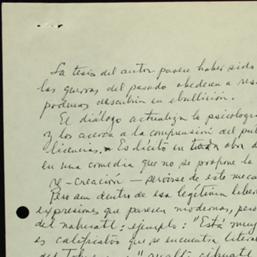 La tesis del autor parece haber sido
las guerras del pasado obedecen a
podemos descubrir en ebullición.
El diálogo actualiza la psicología
y los acerca a la comprensión del
licencias. Es lícito en obra
en una comedia que no se propone la
re-creación — servirse de este
Pero aun dentro de esa legítima
expresiones que parecen modernas,
del nahuatl: ejemplo: "Está muy
es calificativo que se encuentra